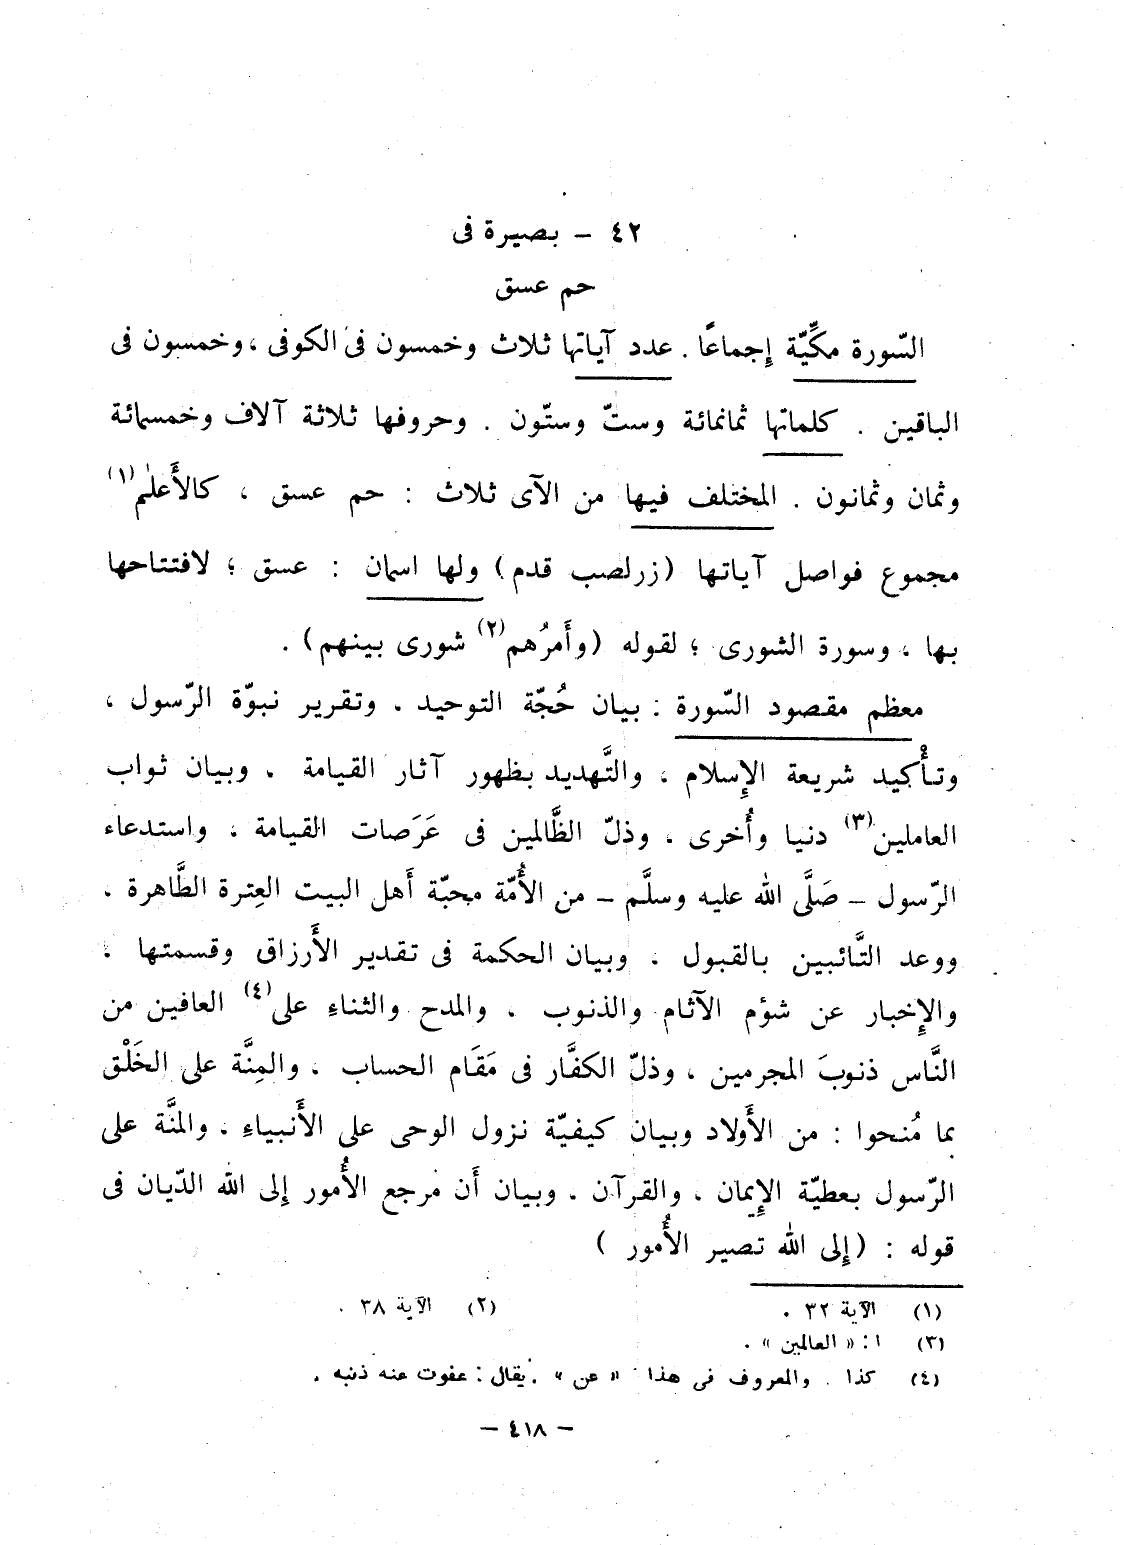 ٤٢ – بصيرة فى
حم عسق
السّورة مكِّيّة إجماعًا . عدد آياتها ثلاث وخمسون فى الكوفى ، وخمسون فى
الباقين . كلماتها ثمانمائة وستّ وستّون . وحروفها ثلاثة آلاف وخمسمائة
وثمان وثمانون . المختلف فيها من الآى ثلاث : حم عسق ، كالأَعلٰم(١)
مجموع فواصل آياتها (زرلصب قدم) ولها اسمان : عسق ؛ لافتتاحها
بها ، وسورة الشورى ؛ لقوله (وأَمرُهم(٢) شورى بينهم) .
معظم مقصود السّورة : بيان حُجّة التوحيد . وتقرير نبوّة الرّسول ،
وتأْكيد شريعة الإِسلام ، والتَّهديد بظهور آثار القيامة . وبيان ثواب
العاملين(٣) دنيا وأُخرى . وذلّ الظَّالمين فى عَرَصات القيامة ، واستدعاء
الرّسول – صَلَّى الله عليه وسلَّم – من الأُمّة محبّة أَهل البيت العِترة الطَّاهرة .
ووعد التَّائبين بالقبول . وبيان الحكمة فى تقدير الأَرزاق وقسمتها .
والإِخبار عن شؤم الآثام والذنوب . والمدح والثناءِ على(٤) العافين من
النَّاس ذنوبَ المجرمين ، وذلّ الكفَّار فى مَقَام الحساب ، والمِنَّة على الخَلْق
بما مُنحوا : من الأَولاد وبيان كيفيّة نزول الوحى على الأَنبياءِ . والمنَّة على
الرّسول بعطيّة الإِيمان ، والقرآن . وبيان أَن مرجع الأُمور إِلى الله الدّيان فى
قوله : (إِلى الله تصير الأُمور )
(١) الآية ٣٢ . (٢) الآية ٣٨ .
(٣) ا : « العالمين » .
(٤) كذا . والمعروف فى هذا « عن » . يقال : عفوت عنه ذنبه .
– ٤١٨ –